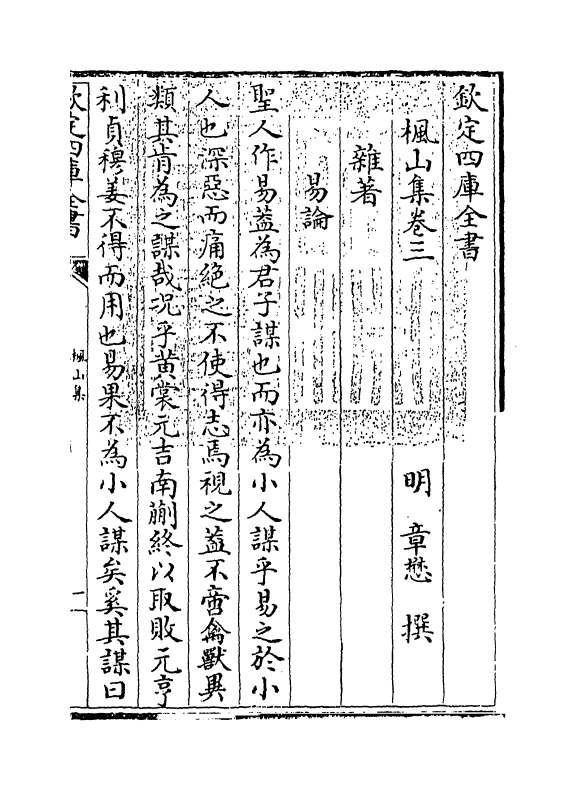 欽定四庫全書
楓山集卷三
明 章懋 撰
雜著
易論
聖人作易葢為君子謀也而亦為小人謀乎易之於小
人也深惡而痛絕之不使得志焉視之葢不啻禽獸異
類其肯為之謀哉况乎黄裳元吉南蒯終以取敗元亨
利貞穆姜不得而用也易果不為小人謀矣奚其謀曰
欽定四庫全書
楓山集
一